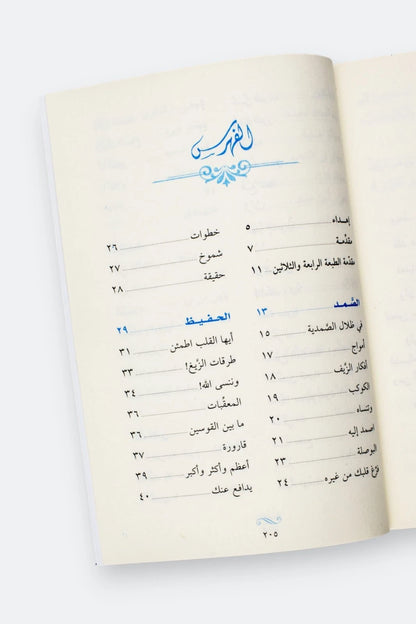 الفهرس
إهداء ٥
مقدّمة ٧
مقدّمة الطبعة الرابعة والثلاثين ١١
الصّمد ١٣
في ظلال الصّمدية ١٥
أمواج ١٧
أفكار الزّيف ١٨
الكوكب ١٩
وتنساه ٢٠
اصمد إليه ٢١
البوصلة ٢٣
فرّغ قلبك من غيره ٢٤
خطوات ٢٦
شموخ ٢٧
حقيقة ٢٨
الحفيـظ ٢٩
أيها القلب اطمئن ٣١
طرقات الزّيغ! ٣٣
وننسى الله! ٣٤
المعقّبات ٣٦
ما بين القوسين ٣٦
قارورة ٣٧
أعظم وأكثر وأكبر ٣٩
يدافع عنك ٤٠
٢٠٥